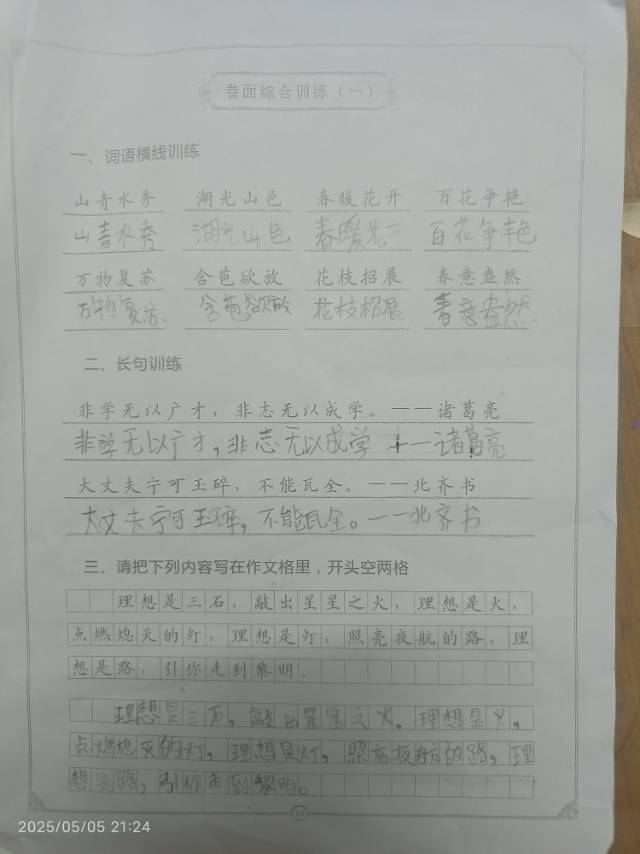 卷面综合训练（一）
一、词语横线训练
山青水秀 湖光山色 春暖花开 百花争艳
山青水秀 湖光山色 春暖花开 百花争艳
万物复苏 含苞欲放 花枝招展 春意盎然
万物复苏 含苞欲放 花枝招展 春意盎然
二、长句训练
非学无以广才，非志无以成学。——诸葛亮
非学无以广才，非志无以成学 十一诸葛亮
大丈夫宁可玉碎，不能瓦全。——北齐书
大丈夫宁可玉碎，不能瓦全。——北齐书
三、请把下列内容写在作文格里，开头空两格
理想是三石，敲出星星之火，理想是火，
点燃熄灭的灯，理想是灯，照亮夜航的路，理
想是路，引你走到黎明。
理想是三石，敲出星星之火。理想是火，
点燃熄灭的灯，理想是灯，照亮夜航的路，理
想是路，引你走到黎明。
2025/05/05 21:24